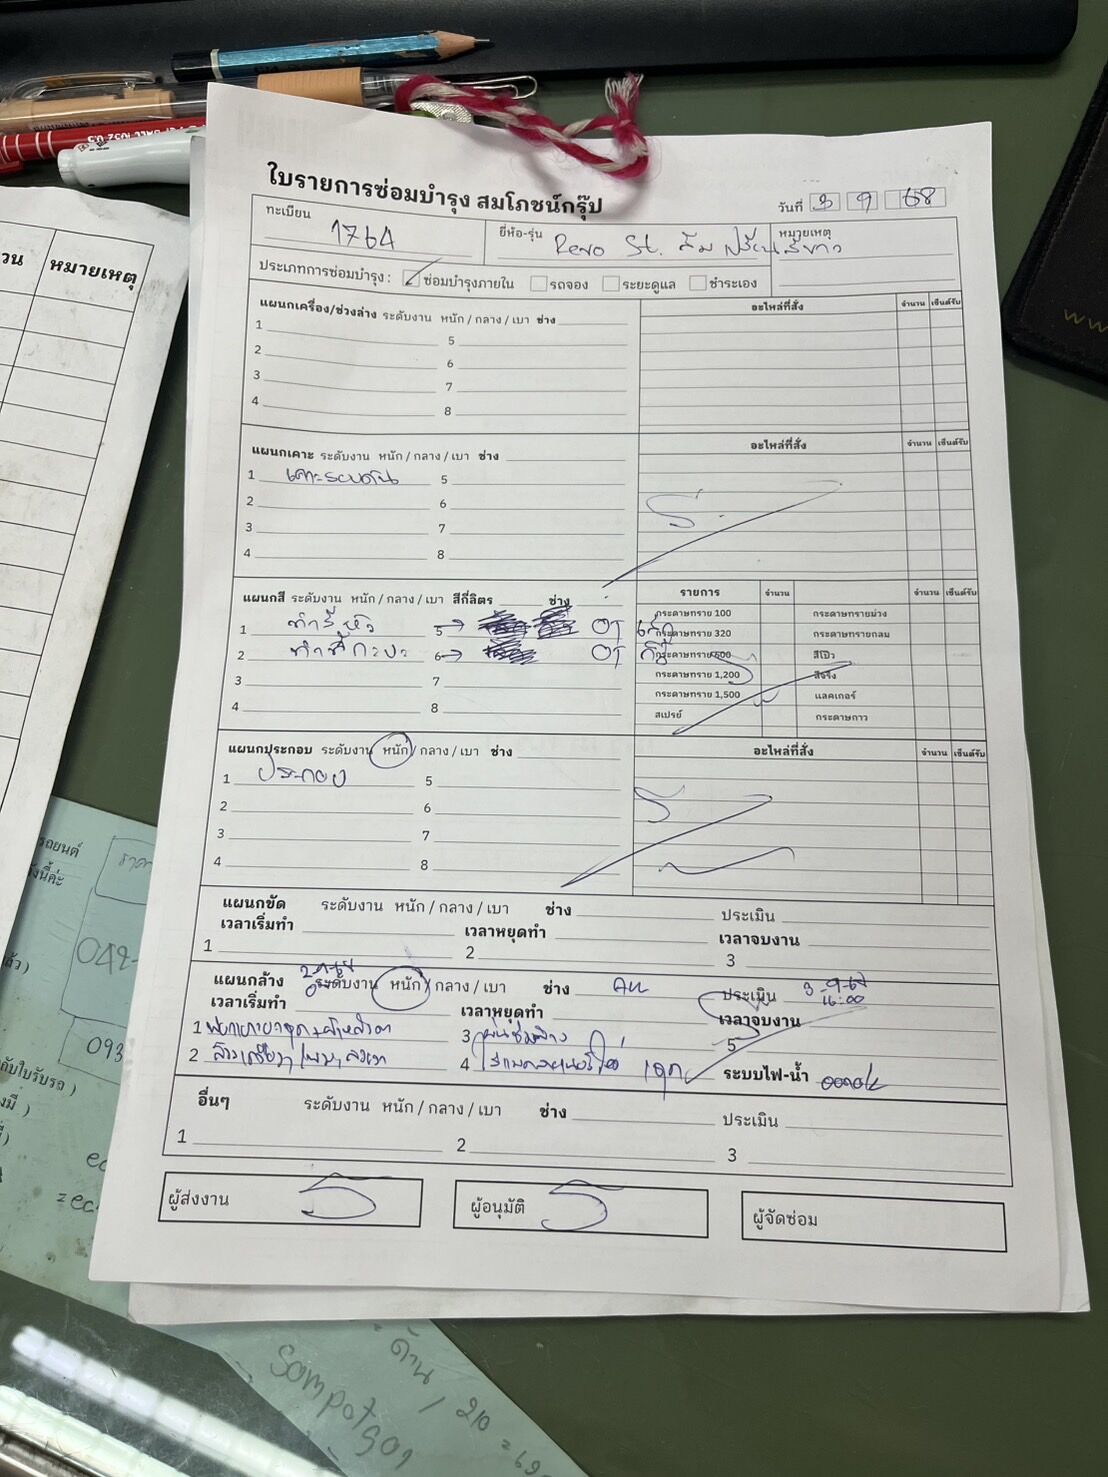 ใบรายการซ่อมบำรุง สมโภชน์กรุ๊ป
วันที่ 3 9 68
ทะเบียน 1764 ยี่ห้อ-รุ่น Revo St. ส้ม หมายเหตุ
ประเภทการซ่อมบำรุง : ซ่อมบำรุงภายใน รถจอง ระยะดูแล ชำระเอง
แผนกเครื่อง/ช่วงล่าง ระดับงาน หนัก / กลาง / เบา ช่าง อะไหล่ที่สั่ง จำนวน เซ็นต์รับ
1 5
2 6
3 7
4 8
แผนกเคาะ ระดับงาน หนัก / กลาง / เบา ช่าง อะไหล่ที่สั่ง จำนวน เซ็นต์รับ
1 5
2 6
3 7
4 8
แผนกสี ระดับงาน หนัก / กลาง / เบา สีกี่ลิตร ช่าง รายการ จำนวน จำนวน เซ็นต์รับ
1 ทำสีหัว 5 OT กระดาษทราย 100 กระดาษทรายม่วง
2 ทำสีกะบะ 6 OT กระดาษทราย 320 กระดาษทรายกลม
3 7 กระดาษทราย 600 สีโป๊ว
4 8 กระดาษทราย 1,200 สีจริง
กระดาษทราย 1,500 แลคเกอร์
สเปรย์ กระดาษกาว
แผนกประกอบ ระดับงาน หนัก / กลาง / เบา ช่าง อะไหล่ที่สั่ง จำนวน เซ็นต์รับ
1 ประกอบ 5
2 6
3 7
4 8
แผนกขัด ระดับงาน หนัก / กลาง / เบา ช่าง ประเมิน
เวลาเริ่มทำ เวลาหยุดทำ เวลาจบงาน
1 2 3
แผนกล้าง ระดับงาน หนัก / กลาง / เบา ช่าง ประเมิน 3-9-68
เวลาเริ่มทำ เวลาหยุดทำ เวลาจบงาน 16:00
1 3 5
2 4 ระบบไฟ-น้ำ
อื่นๆ ระดับงาน หนัก / กลาง / เบา ช่าง ประเมิน
1 2 3
ผู้ส่งงาน ผู้อนุมัติ ผู้จัดซ่อม
หมายเหตุ
รถยนต์
042-
093
ด้าน / 210
Sompotgor